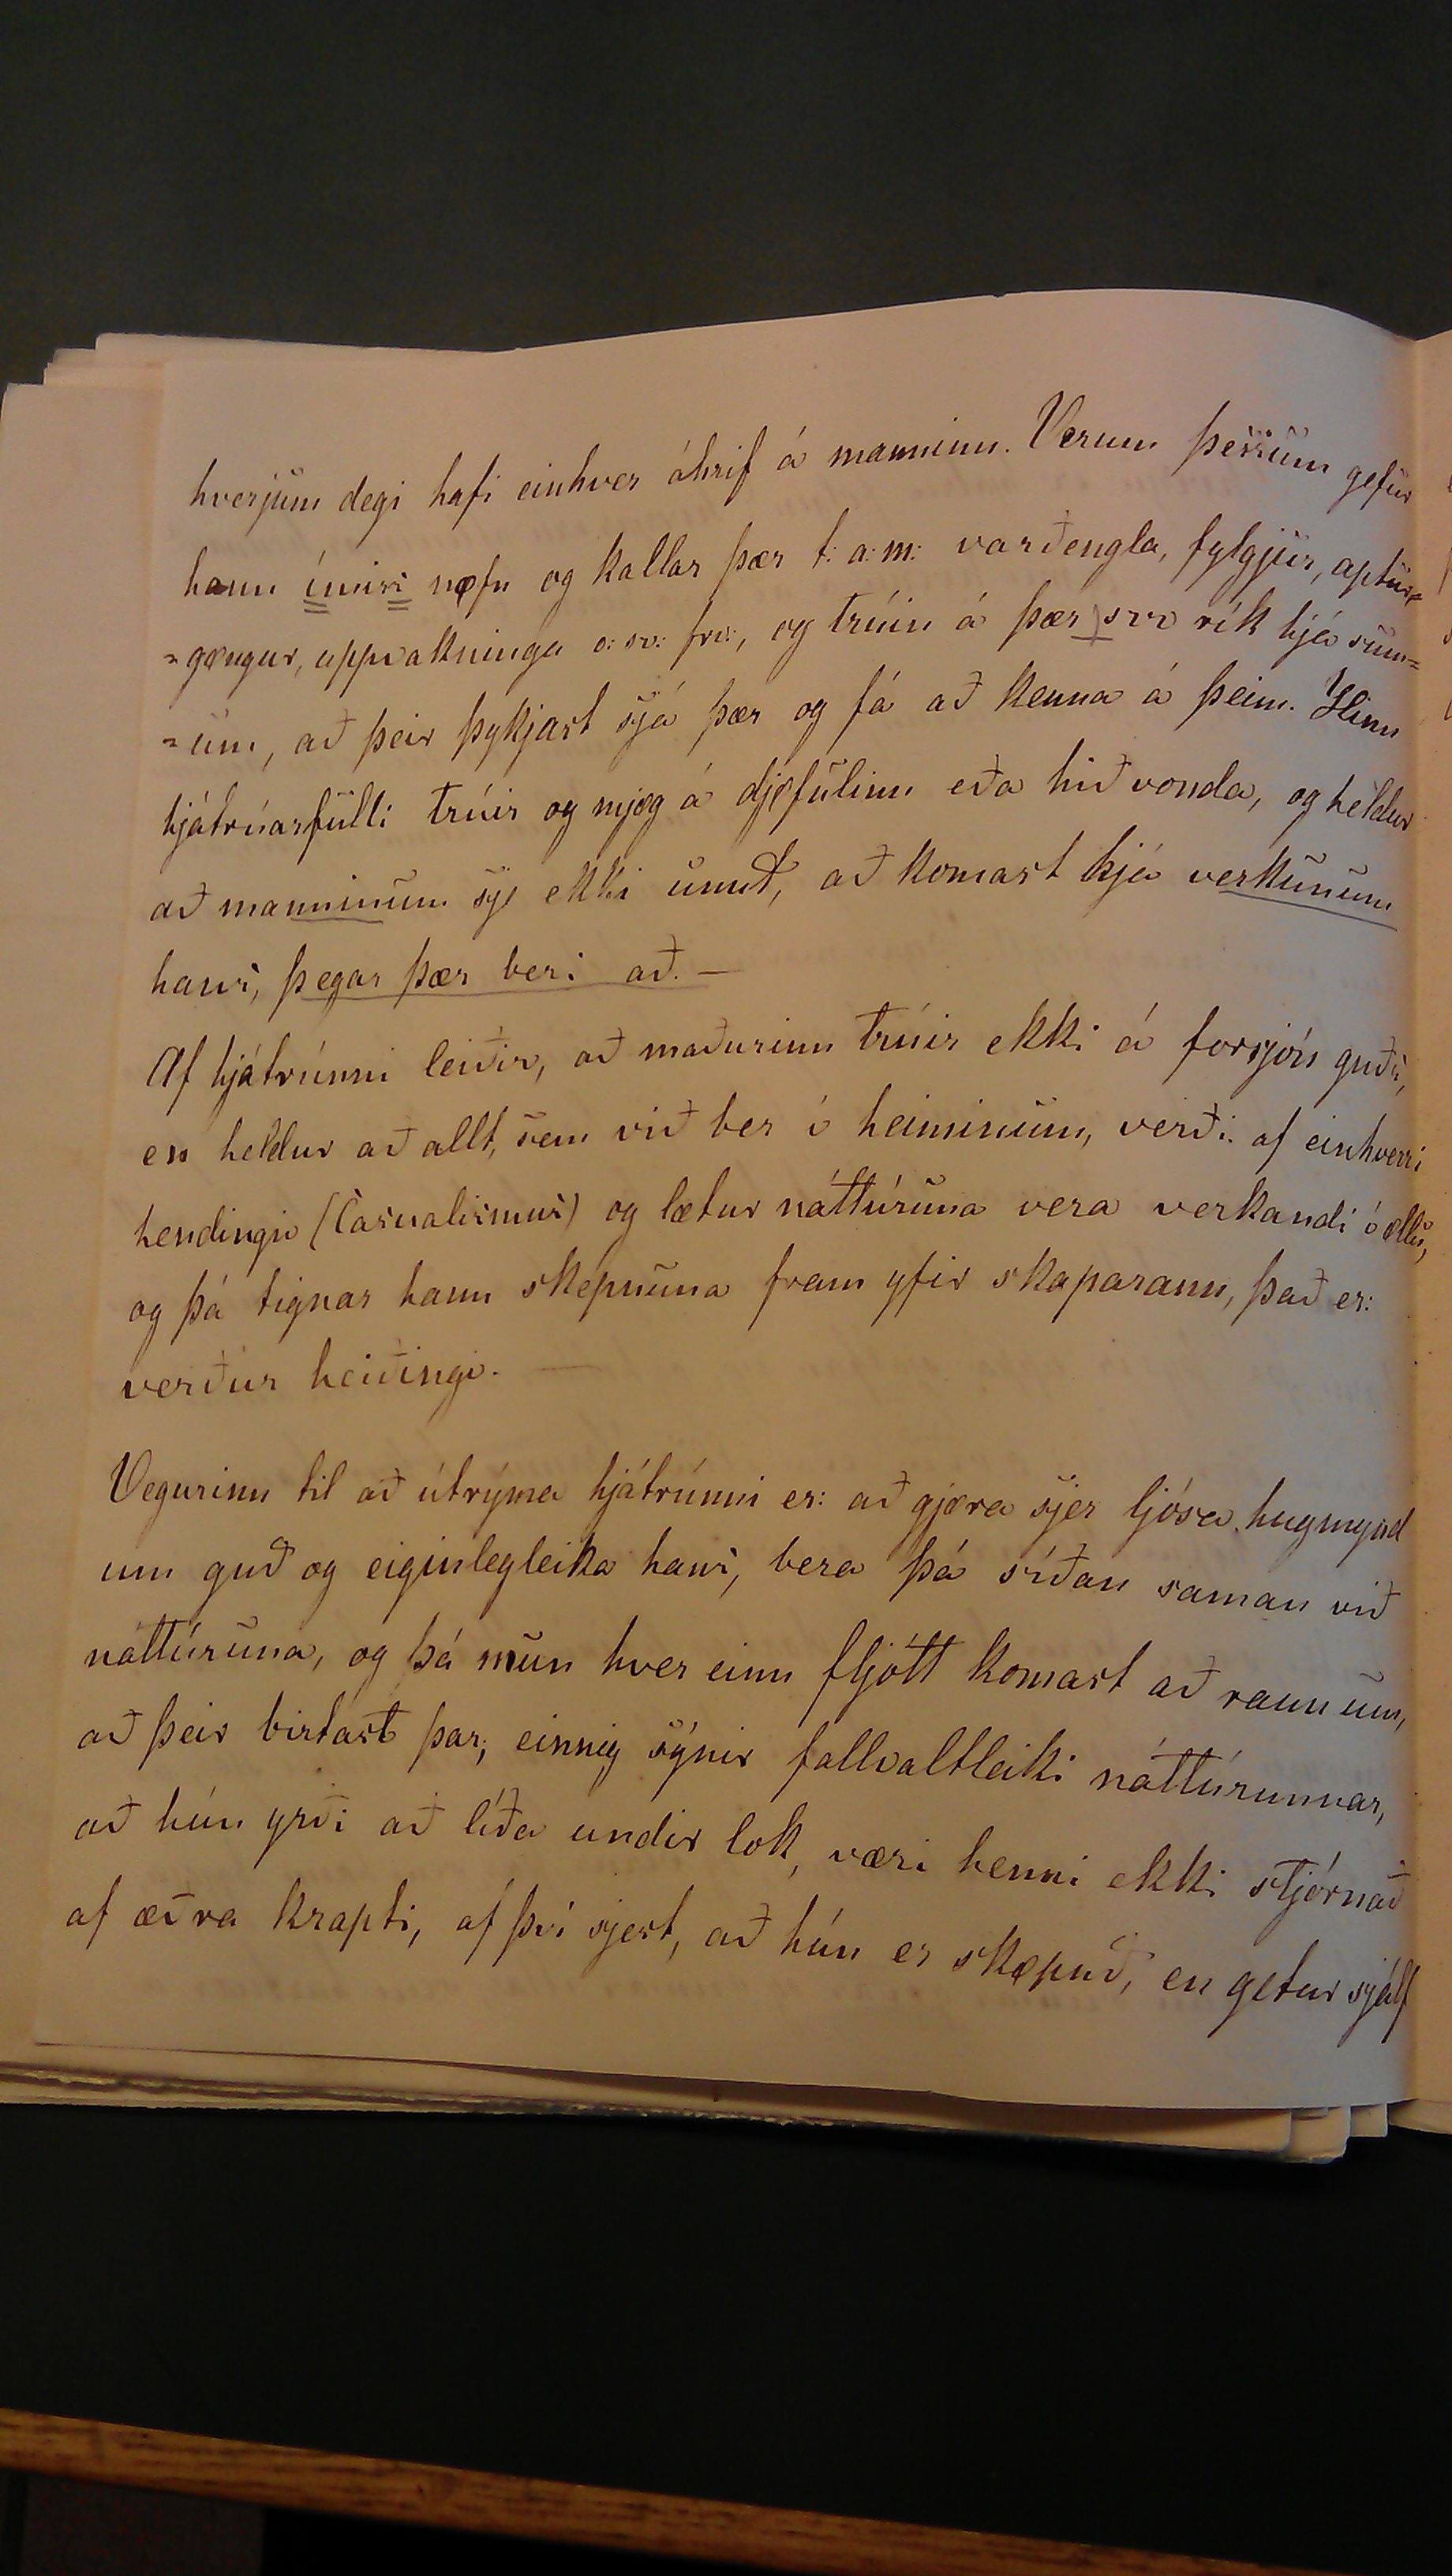 hverjum degi hafi einhver áhrif á manninn. Verum þessum gefur
hann ímiss nøfn og kallar þær t: a: m: varðengla, fylgjur, aptur=
=gøngur, uppvakninga o: sv: frv:, og trúin á þær svo rík hjá sum=
=um, að þeir þykjast sjá þær og fá að kenna á þeim. Hinn
hjátrúarfulli trúir og mjøg á djøfulinn eða hið vonda, og heldur
að manninum sje ekki unnt, að komast hjá verkunum
hans, þegar þær beri að. —
Af hjátrúnni leiðir, að maðurinn trúir ekki á forsjón guðs,
en heldur að allt, sem við ber í heiminum, verði af einhverri
hendingu (Casualismus) og lætur náttúruna vera verkandi í øllu,
og þá tignar hann skepnuna fram yfir skaparann, það er:
verður heiðingi. —
Vegurinn til að útrýma hjátrúnni er: að gjøra sjer ljósa hugmynd
um guð og eiginlegleika hans, bera þá síðan saman við
náttúruna, og þá mun hver einn fljótt komast að raun um,
að þeir birtast þar; einnig sýnir fallvaltleiki náttúrunnar,
að hún yrði að líða undir lok, væri henni ekki stjórnað
af æðra krapti, af því sjest, að hún er skøpuð, en getur sjálf